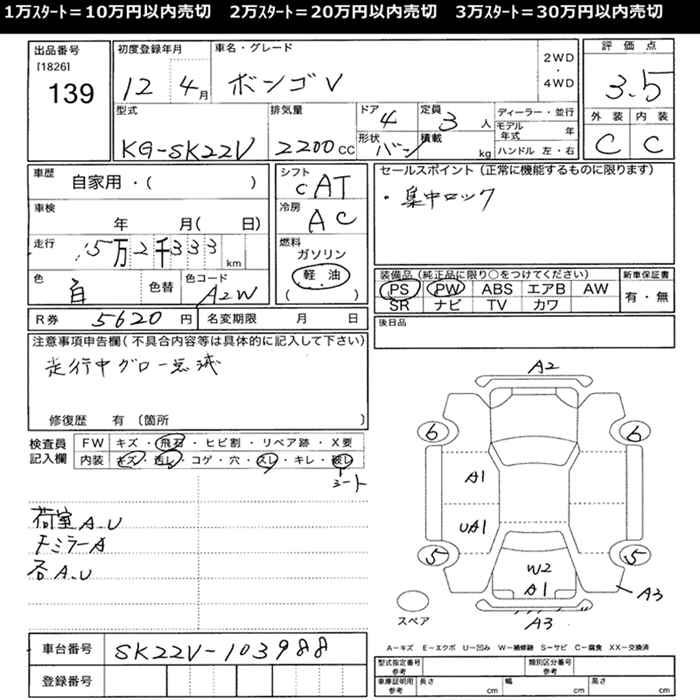 1万ｽﾀｰﾄ＝10万円以内売切 2万ｽﾀｰﾄ＝20万円以内売切 3万ｽﾀｰﾄ＝30万円以内売切
出品番号
[1826]
139
初度登録年月
12 4月
車名・グレード
ボンゴV
2WD
・
4WD
評価点
3.5
外装 内装
C C
型式
KG-SK22V
排気量
2200CC
ドア
4
形状
バン
定員
3人
積載
kg
ディーラー・並行
モデル年式 年
ハンドル 左・右
車歴
自家用・( )
車検
年 月( 日)
走行
5万2千333km
色
白
色替
色コード
A2W
シフト
CAT
冷房
AC
燃料
ガソリン
軽・油
( )
セールスポイント(正常に機能するものに限ります)
・集中ロック
装備品(純正品に限り○をつけてください)
PS PW ABS エアB AW
SR ナビ TV カワ
新車保証書
有・無
R券 5620円
名変期限 月 日
後日品
注意事項申告欄(不具合内容等は具体的に記入して下さい)
走行中グロー点滅
修復歴 有〔箇所 〕
検査員記入欄
FW キズ・飛石・ヒビ割・リペア跡・X要
内装 キズ・汚レ・コゲ・穴・スレ・キレ・破レ
シート
荷室A.U
ミラーA
A.U
A2
6 6
A1
UA1
5 5
W2
A1
A3
A3
スペア
A-キズ E-エクボ U-凹み W-補修跡 S-サビ C-腐食 XX-交換済
車台番号
SK22V-103988
登録番号
型式指定番号
参考
類別区分番号
参考
車庫証明用
参考
長さ cm 幅 cm 高さ cm